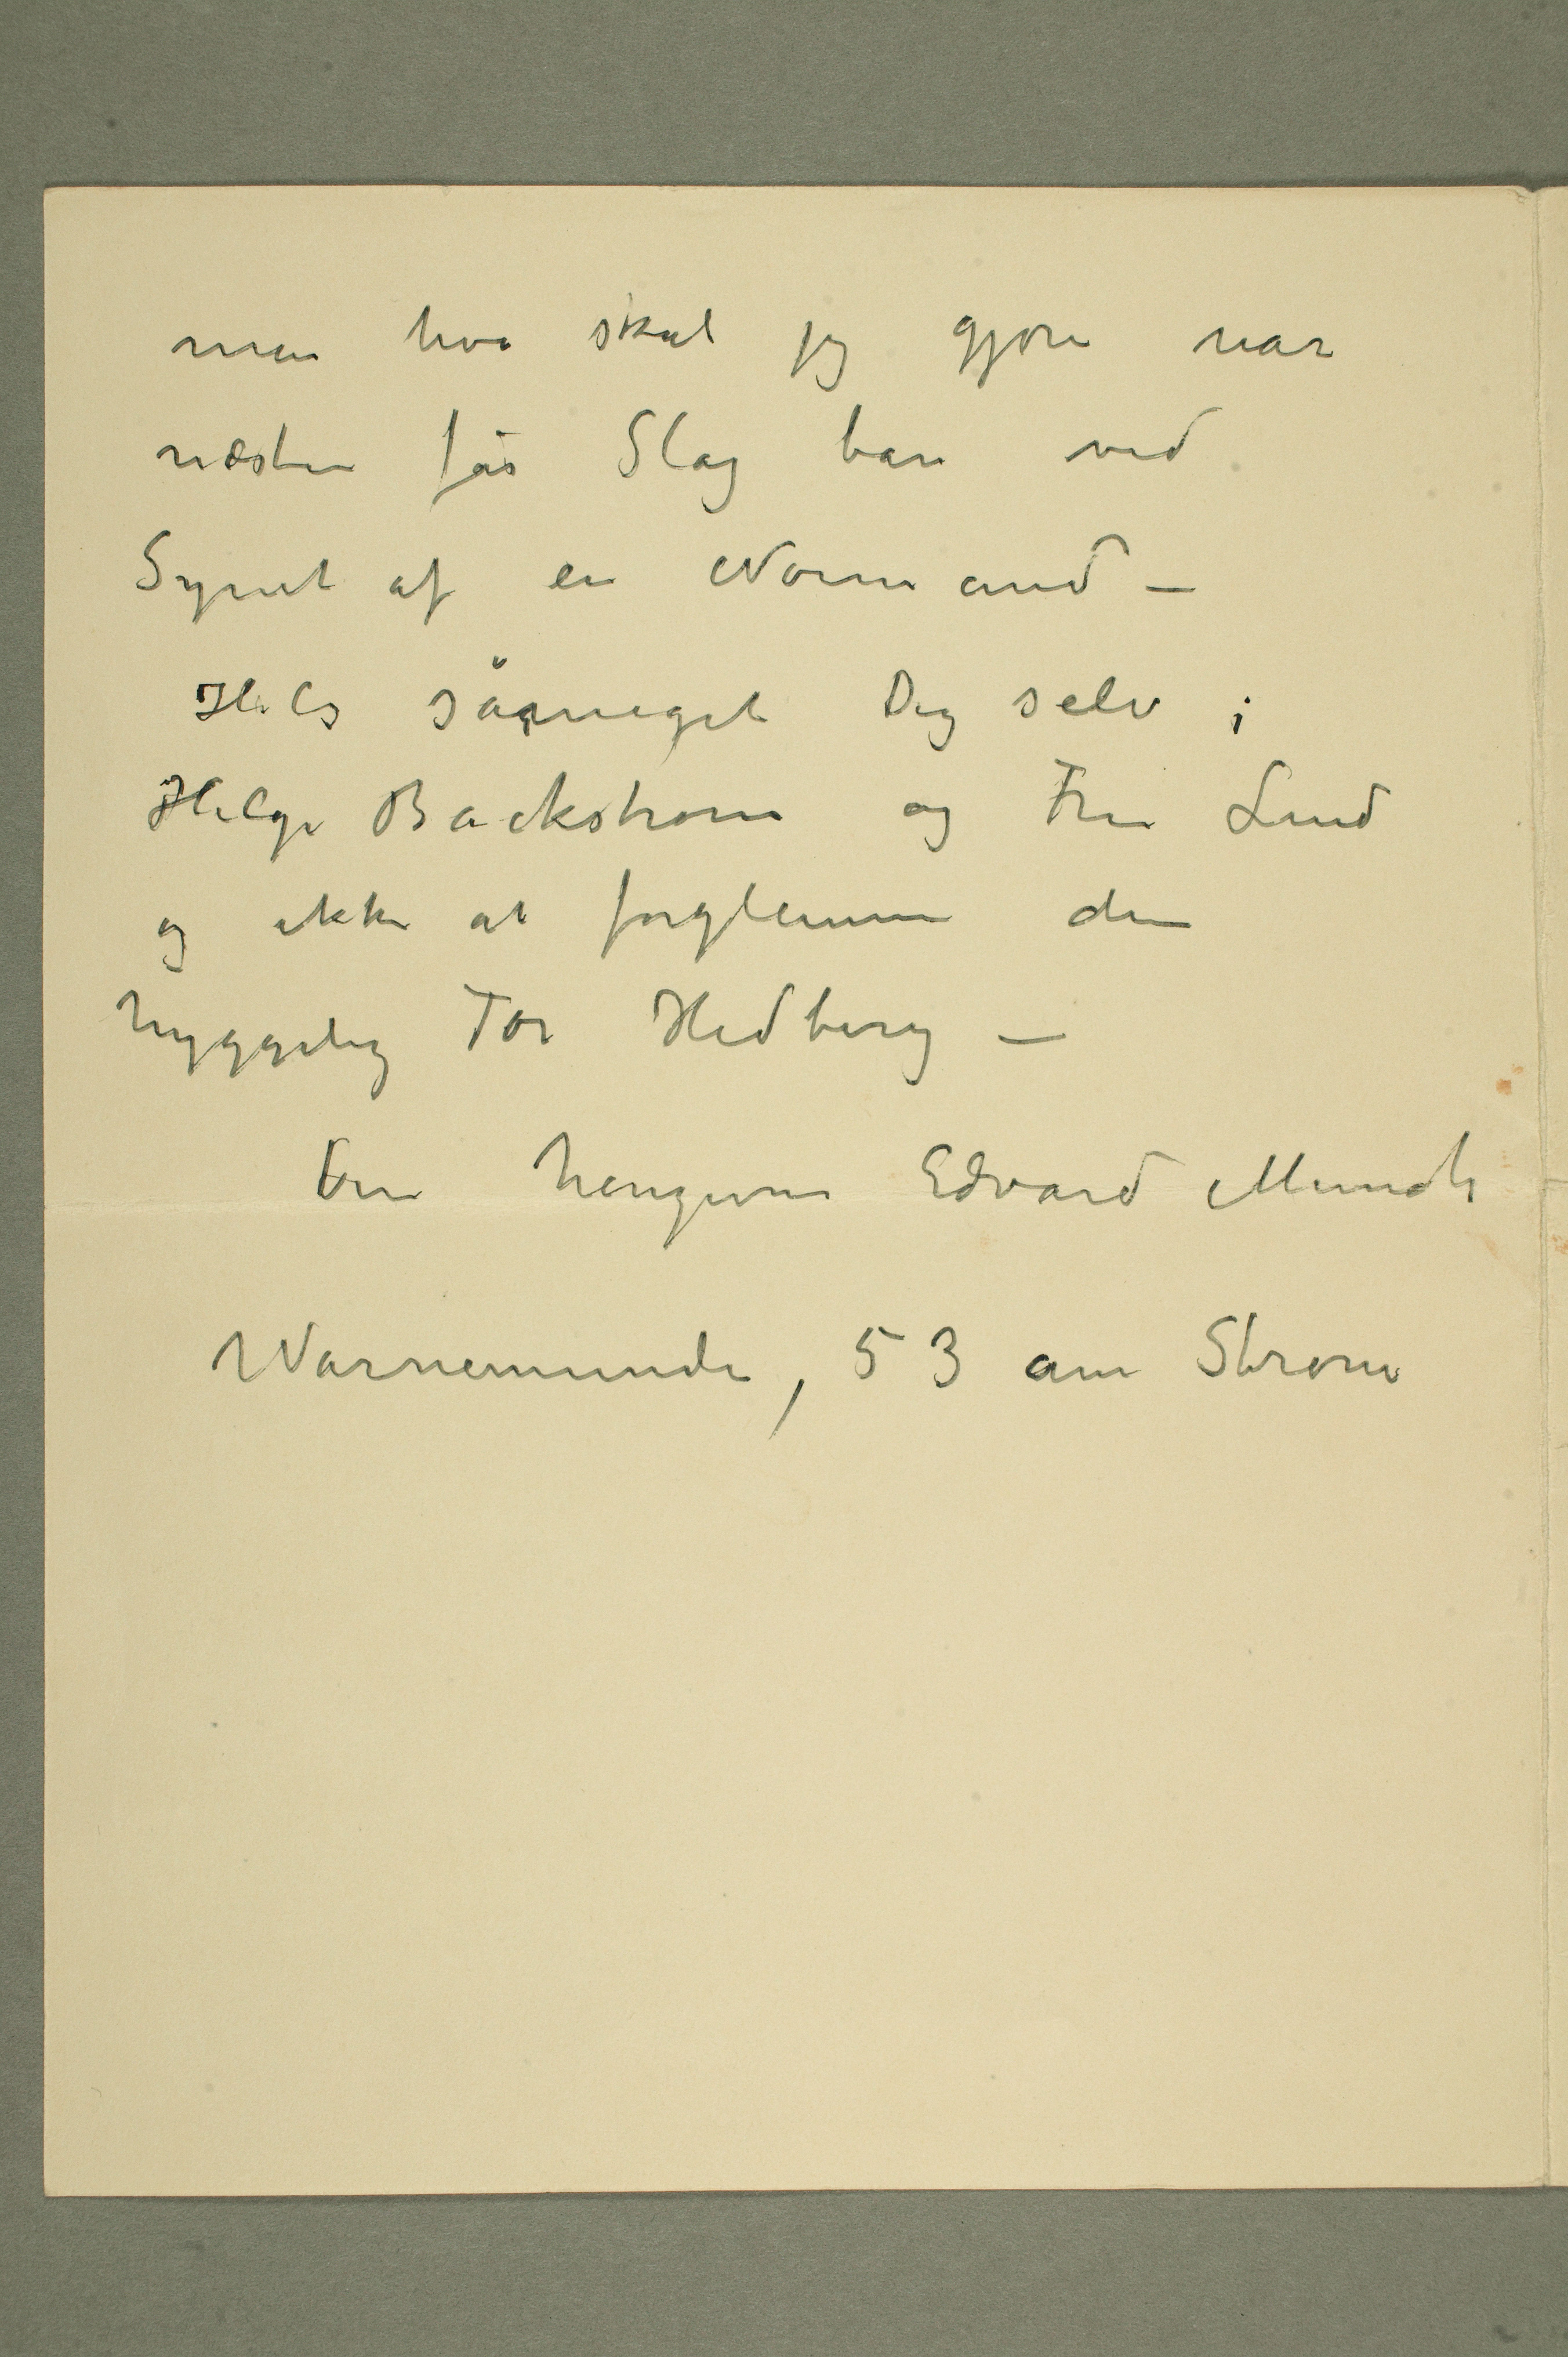 men hva skal jeg gjøre når
næsten får Slag bare ved
Synet af en Normand –
Hils såmeget Dig selv i
Helge Backstrøm og Fru Lund
og ikke at forglemme den
hyggelig Tor Hedberg –
Din hengivne Edvard Munch
Warnemunde, 53 am Strom